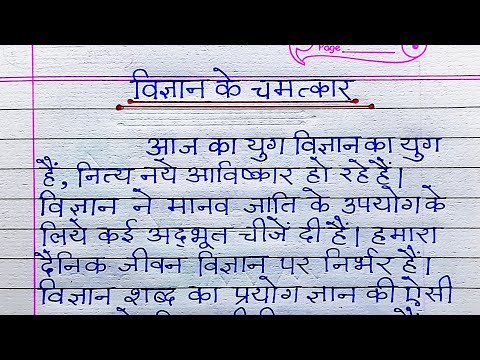 Page
विज्ञान के चमत्कार
आज का युग विज्ञान का युग
हैं, नित्य नये आविष्कार हो रहे हैं।
विज्ञान ने मानव जाति के उपयोग के
लिये कई अद्भूत चीजें दी हैं। हमारा
दैनिक जीवन विज्ञान पर निर्भर हैं।
विज्ञान शब्द का प्रयोग ज्ञान की ऐसी